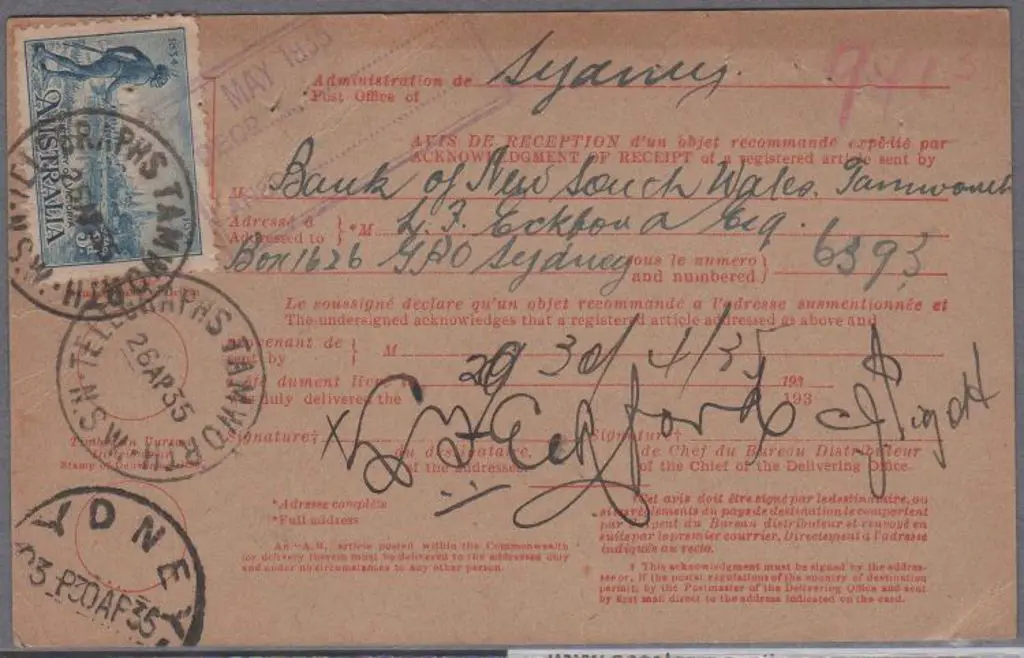 1834
AUSTRALIA
MAY 1935
Administration de
Post Office of
Sydney.
AVIS DE RECEPTION d'un objet recommandé expédié par
ACKNOWLEDGMENT OF RECEIPT of a registered article sent by
M Bank of New South Wales. Tamworth
Adressé à
Addressed to
*M
Esq.
Box 1626 GPO Sydney
sous le numero
and numbered
6393
Le soussigné déclare qu'un objet recommandé a l'adresse susmentionnée et
The undersigned acknowledges that a registered article addressed as above and
provenant de
sent by
M
dument livré
duly delivered the
30/4/35
193
193
Signature†
du destinataire.
of the addressee.
Signature†
de Chef du Bureau Distributeur
of the Chief of the Delivering Office.
*Adresse complète
*Full address
An "A.R. article posted within the Commonwealth
for delivery therein must be delivered to the addressee only
and under no circumstances to any other person.
Cet avis doit être signé par le destinataire, ou
si les règlements du pays de destination le comportent
par l'agent du Bureau distributeur et renvoyé en
suite par le premier courrier, Directement à l'adresse
indiquée au recto.
† This acknowledgment must be signed by the addres-
see or, if the postal regulations of the country of destination
permit, by the Postmaster of the Delivering Office and sent
by first mail direct to the address indicated on the card.
TELEGRAPHS TAMWORTH N.S.W.
TELEGRAPHS TAMWORTH N.S.W.
26 AP 35
Stamp of Delivering Office
SYDNEY
30 AP 35